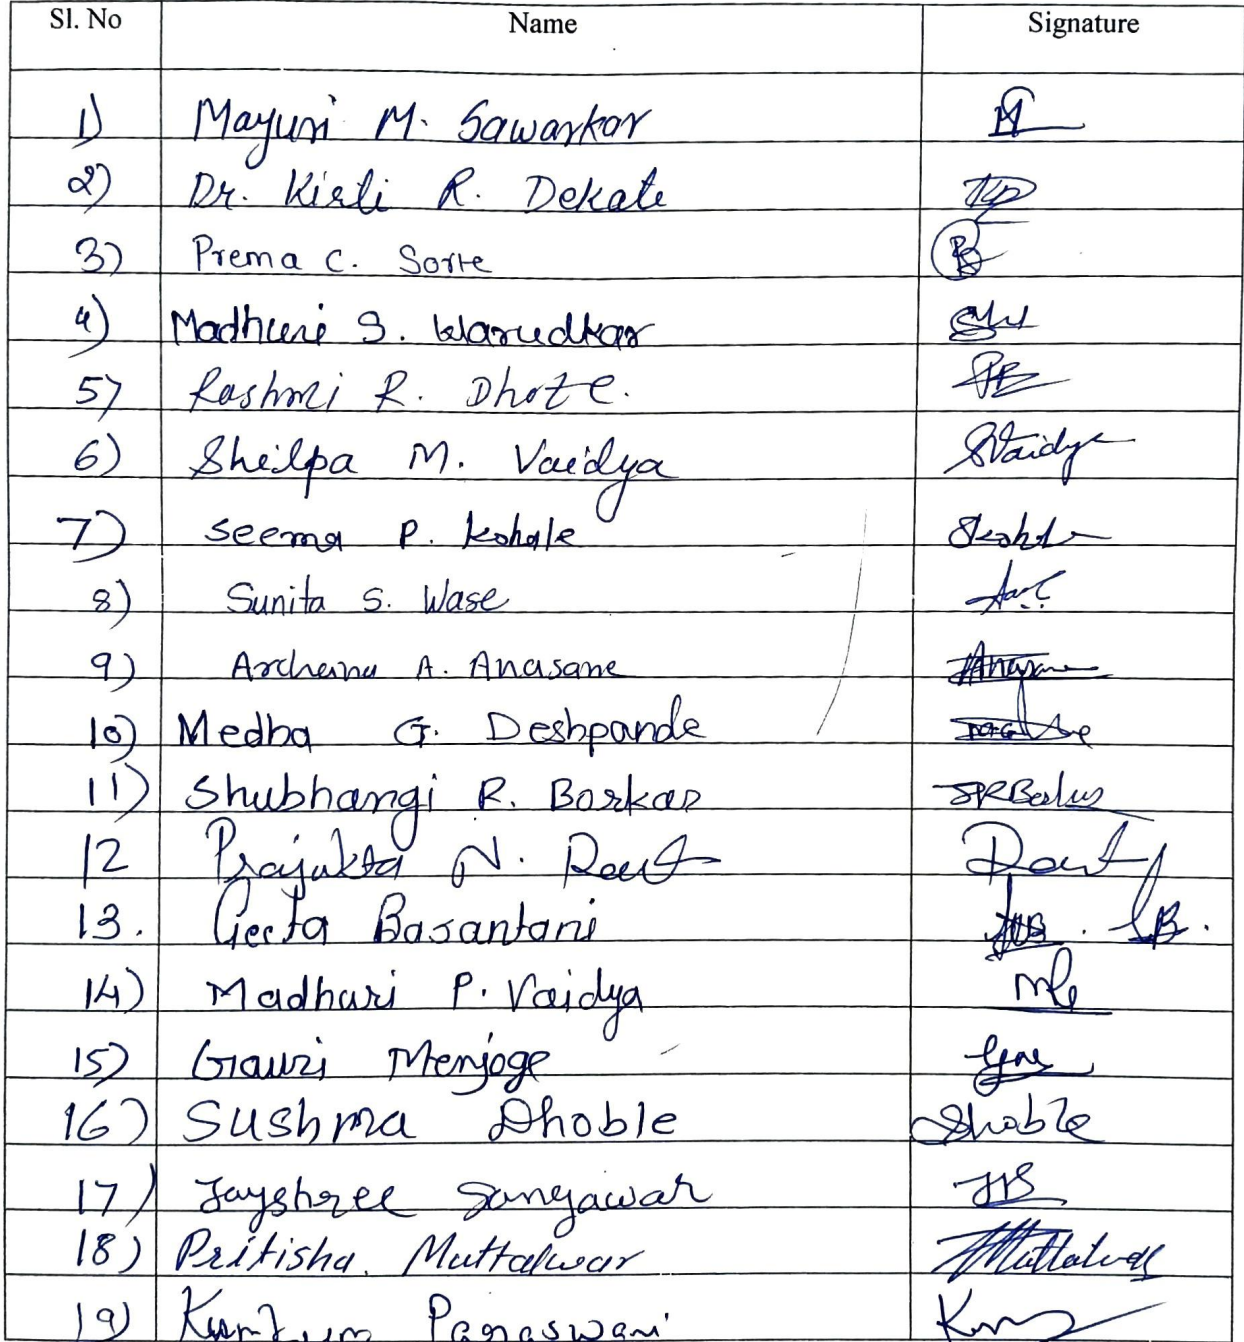 Sl. No Name Signature
1) Mayuri M. Sawarkar
2) Dr. Kirti R. Dekate
3) Prema C. Sorte
4) Madhuri S. Warudkar
5) Rashmi R. Dhote.
6) Shilpa M. Vaidya SVaidya
7) Seema P. Kohale
8) Sunita S. Wase
9) Archana A. Anasane
10) Medha G. Deshpande
11) Shubhangi R. Borkar
12 Prajakta N. Raut Raut
13. Geeta Basantani
14) Madhuri P. Vaidya
15) Gauri Menjoge
16) Sushma Dhoble Dhoble
17) Jayshree Sangawar
18) Pritisha. Muttalwar
19) Kumkum Panaswani